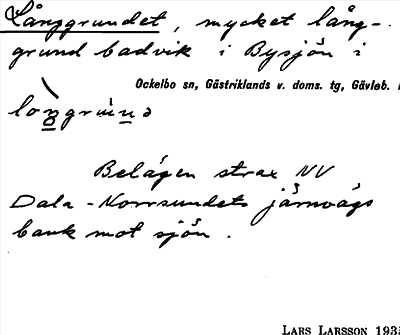 Långgrundet, mycket lång-
grund badvik i Bysjön i
Ockelbo sn, Gästriklands v. doms. tg, Gävleb.
Belägen strax NV
Dala-Norrsundets järnvägs
bank mot sjön.
LARS LARSSON 193